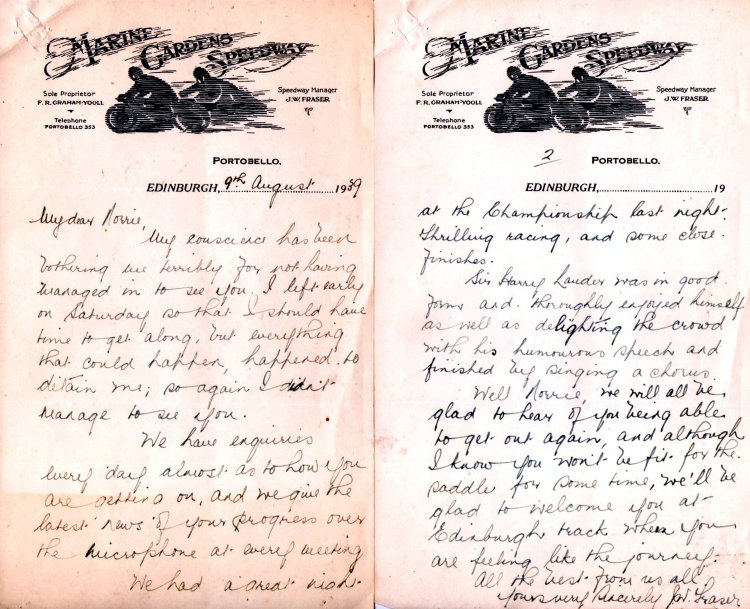 MARINE
GARDENS
SPEEDWAY
Sole Proprietor
F. R. GRAHAM-YOOLL
Telephone
PORTOBELLO 353
Speedway Manager
J. W. FRASER
PORTOBELLO.
EDINBURGH, 9th August 1939
My dear Norrie,
My conscience has been
bothering me terribly for not having
managed in to see you. I left early
on Saturday so that I should have
time to get along, but everything
that could happen, happened to
detain me; so again I didn't
manage to see you.
We have enquiries
every day almost as to how you
are getting on, and we give the
latest news of your progress over
the microphone at every meeting
We had a great night
MARINE
GARDENS
SPEEDWAY
Sole Proprietor
F. R. GRAHAM-YOOLL
Telephone
PORTOBELLO 353
Speedway Manager
J. W. FRASER
2
PORTOBELLO.
EDINBURGH, 19
at the Championship last night.
Thrilling racing, and some close
finishes.
Sir Harry Lauder was in good
form and thoroughly enjoyed himself
as well as delighting the crowd
with his humourous speech and
finished by singing a chorus.
Well Norrie, we will all be
glad to hear of you being able
to get out again, and although
I know you won't be fit for the
saddle for some time, we'll be
glad to welcome you at
Edinburgh track when you
are feeling like the journey.
All the best from us all
Yours very sincerely J.W. Fraser